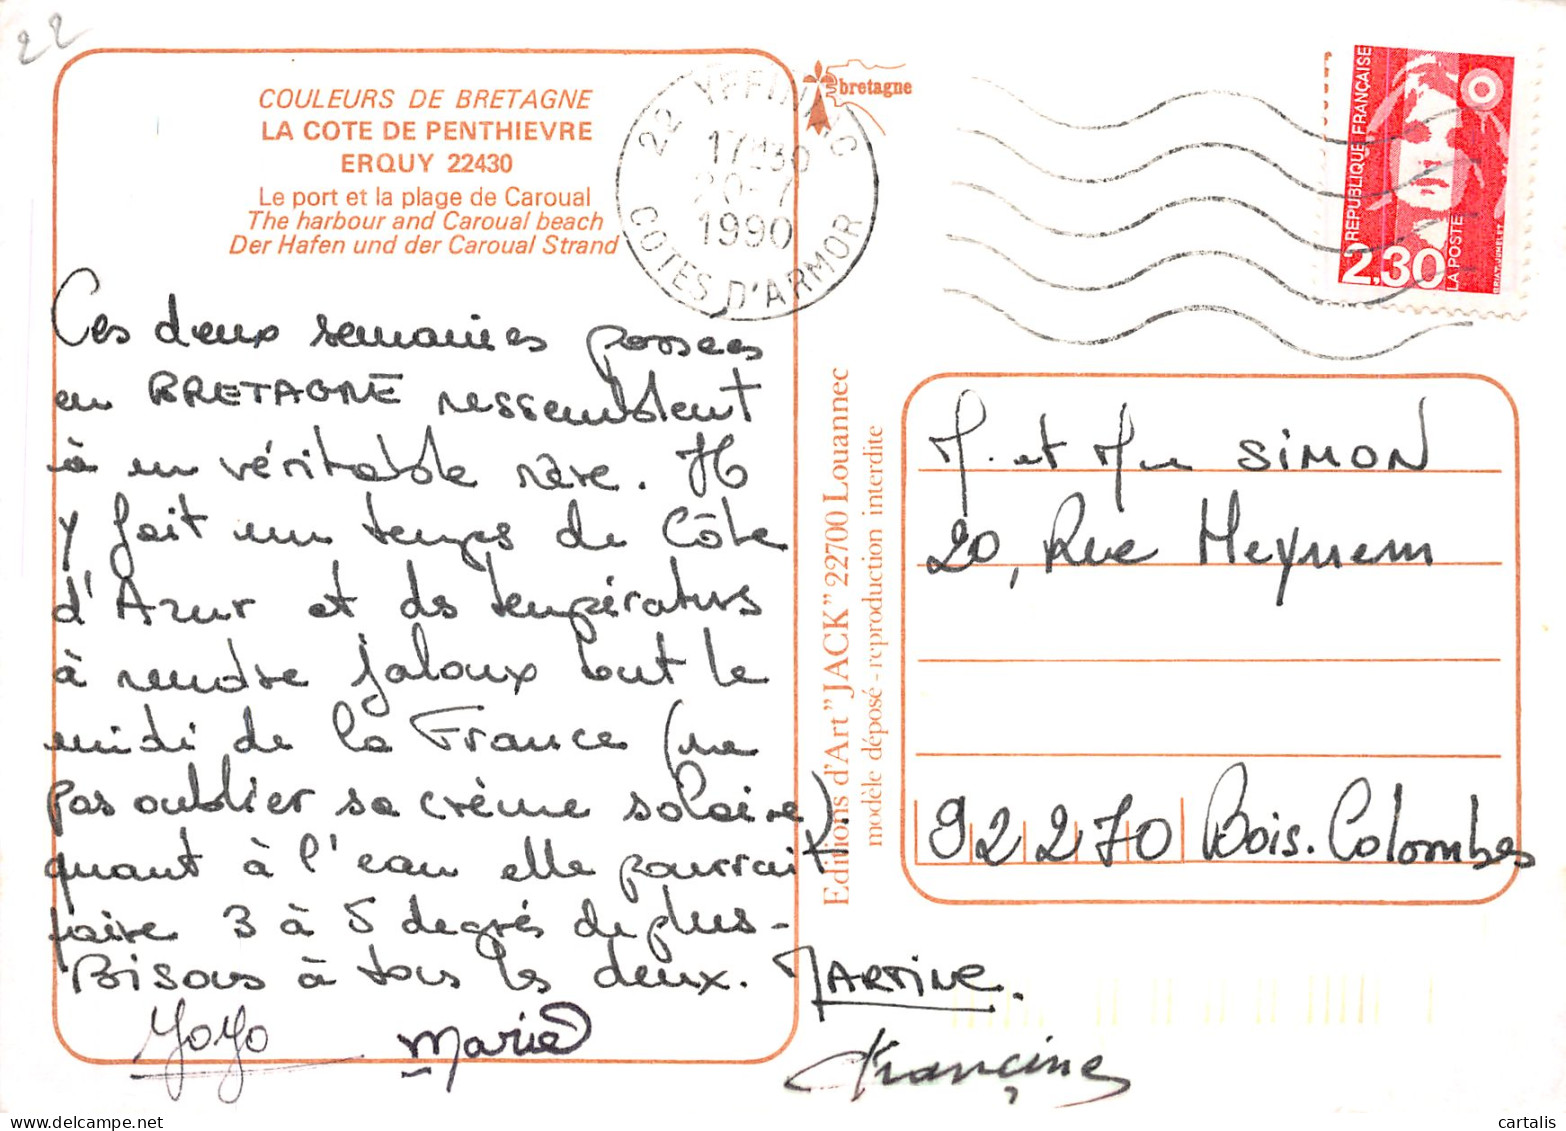 22
COULEURS DE BRETAGNE
LA COTE DE PENTHIEVRE
ERQUY 22430
Le port et la plage de Caroual
The harbour and Caroual beach
Der Hafen und der Caroual Strand
Ces deux semaines passées
en BRETAGNE ressemblent
à un véritable rêve. Il
y fait un temps de Côte
d'Azur et des températures
à rendre jaloux tout le
midi de la France (ne
pas oublier sa crème solaire).
quant à l'eau elle pourrait
faire 3 à 5 degrés de plus-
Bisous à tous les deux. MARTINE.
YoYo Marie
Françine
22 YFFINIAC
17H30
20-7
1990
COTES D'ARMOR
bretagne
REPUBLIQUE FRANÇAISE
2,30
LA POSTE
BRIAT JUMELET
Editions d'Art "JACK" 22700 Louannec
modèle déposé - reproduction interdite
M. et Me SIMON
20, Rue Meynem
92270 Bois.Colombes
cartalis